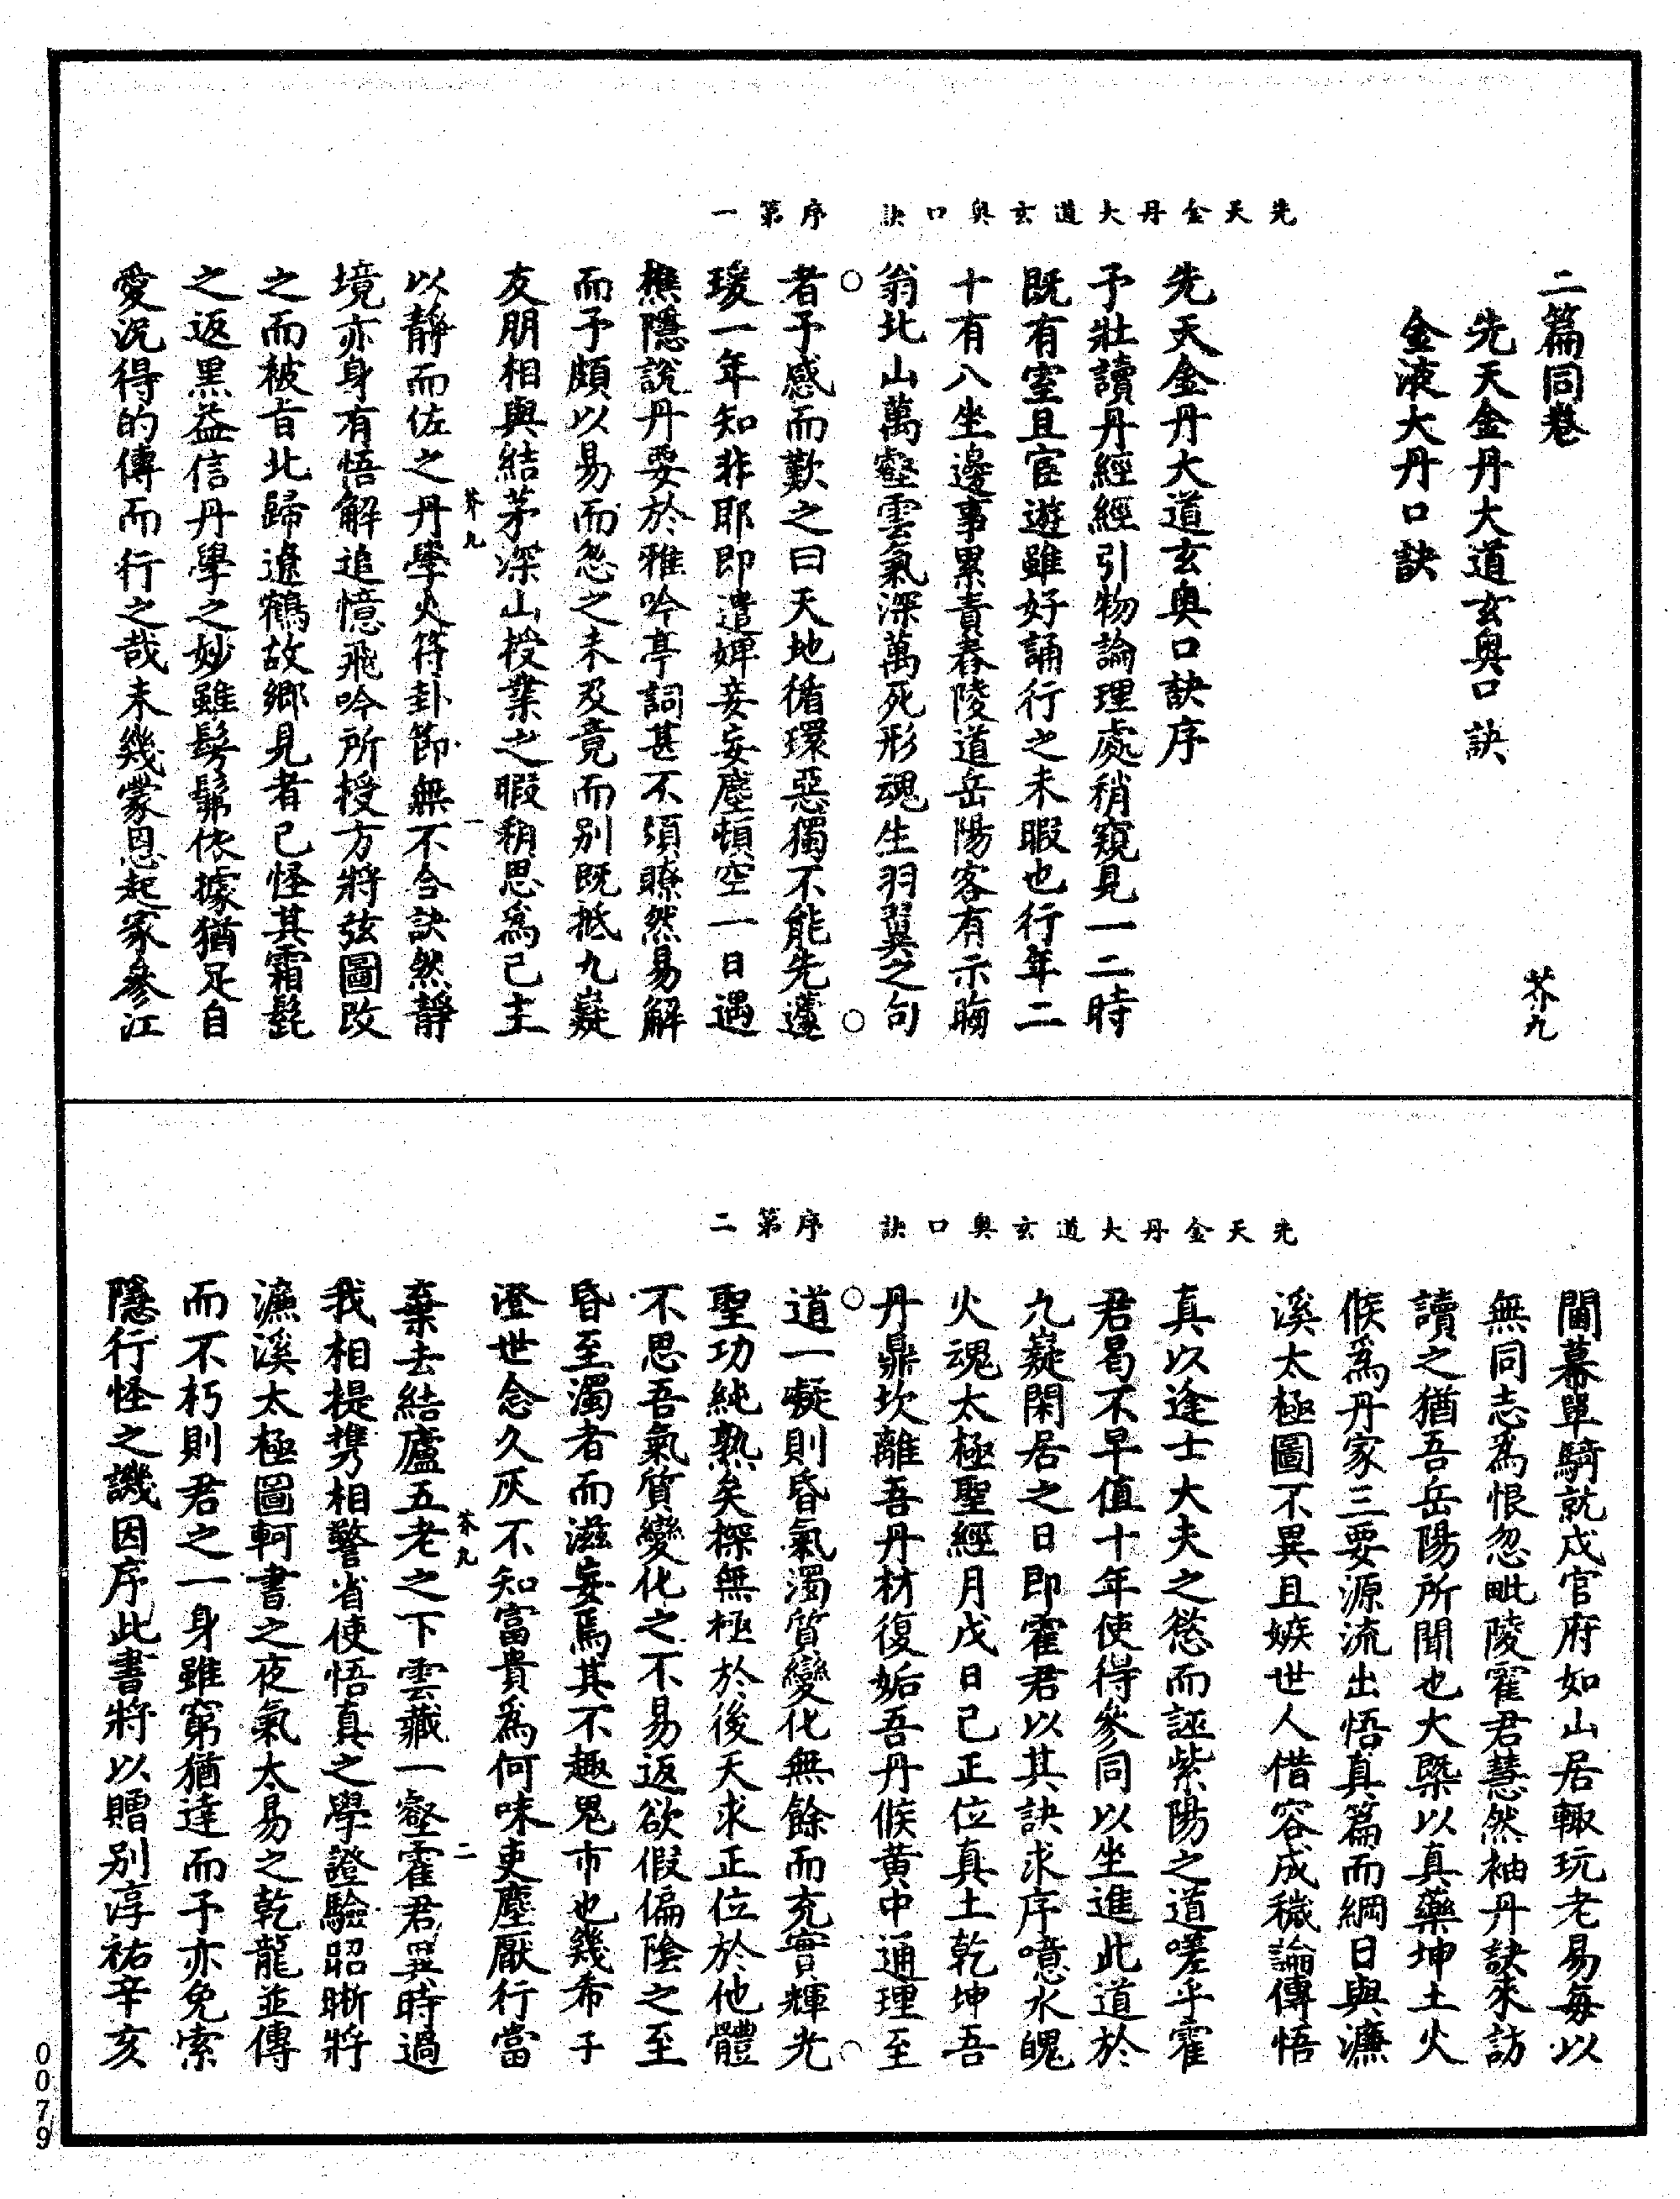 二篇同卷
芥九
先天金丹大道玄奧口訣
金液大丹口訣
先天金丹大道玄奧口訣　序第一
先天金丹大道玄奧口訣序
予壯讀丹經經引物論理處稍窺見一二時
既有室且宦遊雖好誦行之未暇也行年二
十有八坐邊事累責舂陵道岳陽客有示晦
翁北山萬壑雲氣深萬死形魂生羽翼之句
者予感而歎之曰天地循環惡獨不能先蘧
瑗一年知非耶即遣婢妾妄塵頓空一日遇
樵隱說丹要於雅吟亭詞甚不煩瞭然易解
而予頗以易而忽之未及竟而別既抵九嶷
友朋相與結茅深山授業之暇稍思為己主
芥九　一
以靜而佐之丹學火符卦節無不合訣然靜
境亦身有悟解追憶飛吟所授方將弦圖改
之而被旨北歸遼鶴故鄉見者已怪其霜髭
之返黑益信丹學之妙雖髣髴依據猶足自
愛況得的傳而行之哉未幾蒙恩起家參江
先天金丹大道玄奧口訣　序第二
閫幕單騎就戍官府如山居輒玩老易每以
無同志為恨忽毗陵霍君慧然袖丹訣來訪
讀之猶吾岳陽所聞也大槩以真藥坤土火
候為丹家三要源流出悟真篇而綱日與濂
溪太極圖不異且嫉世人借容成穢論傳悟
真以逢士大夫之慾而誣紫陽之道嗟乎霍
君曷不早值十年使得參同以坐進此道於
九嶷閑居之日即霍君以其訣求序噫水魄
火魂太極聖經月戊日己正位真土乾坤吾
丹鼎坎離吾丹材復姤吾丹候黃中通理至
道一凝則昏氣濁質變化無餘而充實輝光
聖功純熟矣探無極於後天求正位於他體
不思吾氣質變化之不易返欲假偏陰之至
昏至濁者而滋妄焉其不趣鬼市也幾希予
澄世念久灰不知富貴為何味吏塵厭行當
芥九　二
棄去結廬五老之下雲藏一壑霍君異時過
我相提携相警省使悟真之學證驗昭晰將
濂溪太極圖軻書之夜氣太易之乾龍並傳
而不朽則君之一身雖窮猶達而予亦免索
隱行怪之譏因序此書將以贈別淳祐辛亥
0079